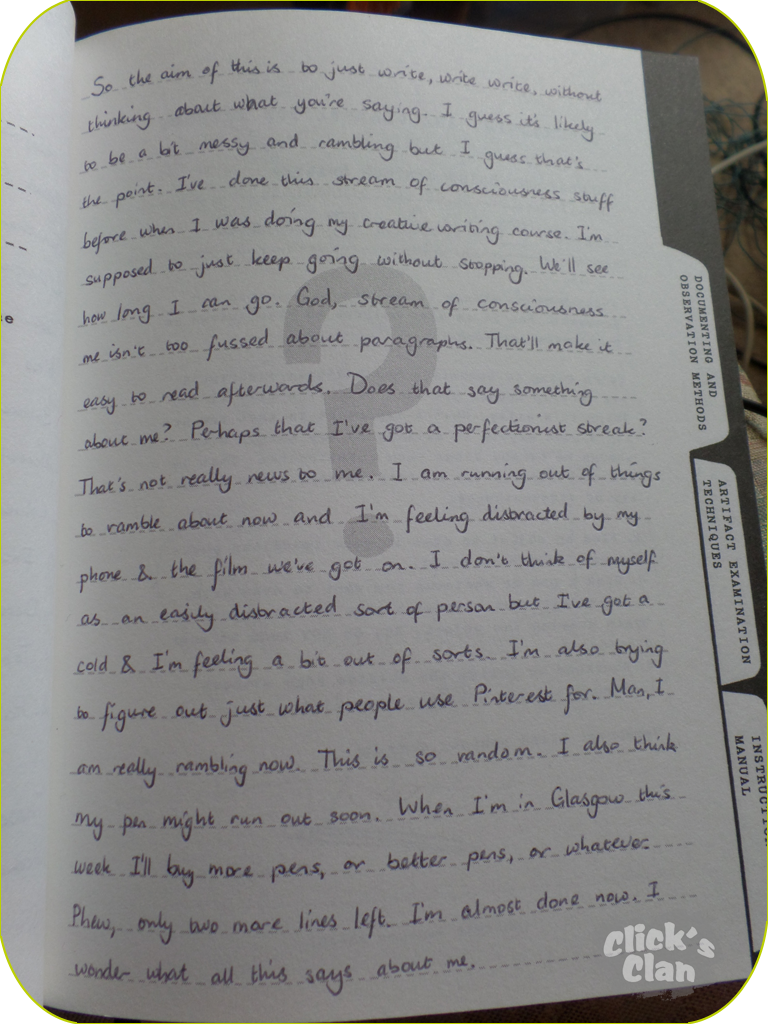 So the aim of this is to just write, write write, without
thinking about what you're saying. I guess it's likely
to be a bit messy and rambling but I guess that's
the point. I've done this stream of consciousness stuff
before when I was doing my creative writing course. I'm
supposed to just keep going without stopping. We'll see
how long I can go. God, stream of consciousness
me isn't too fussed about paragraphs. That'll make it
easy to read afterwards. Does that say something
about me? Perhaps that I've got a perfectionist streak?
That's not really news to me. I am running out of things
to ramble about now and I'm feeling distracted by my
phone & the film we've got on. I don't think of myself
as an easily distracted sort of person but I've got a
cold & I'm feeling a bit out of sorts. I'm also trying
to figure out just what people use Pinterest for. Man, I
am really rambling now. This is so random. I also think
my pen might run out soon. When I'm in Glasgow this
week I'll buy more pens, or better pens, or whatever.
Phew, only two more lines left. I'm almost done now. I
wonder what all this says about me.
DOCUMENTING AND
OBSERVATION METHODS
ARTIFACT EXAMINATION
TECHNIQUES
MANUAL
e
?
Click's
Clan